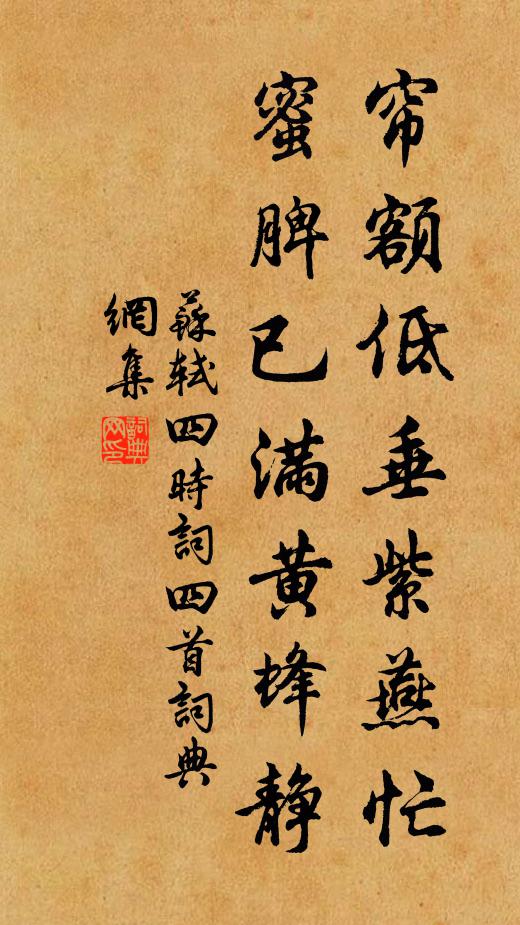 帘額低垂紫燕忙
蜜脾已滿黄蜂静
蘇軾四時詞四首詞典
網集
詞典
网印